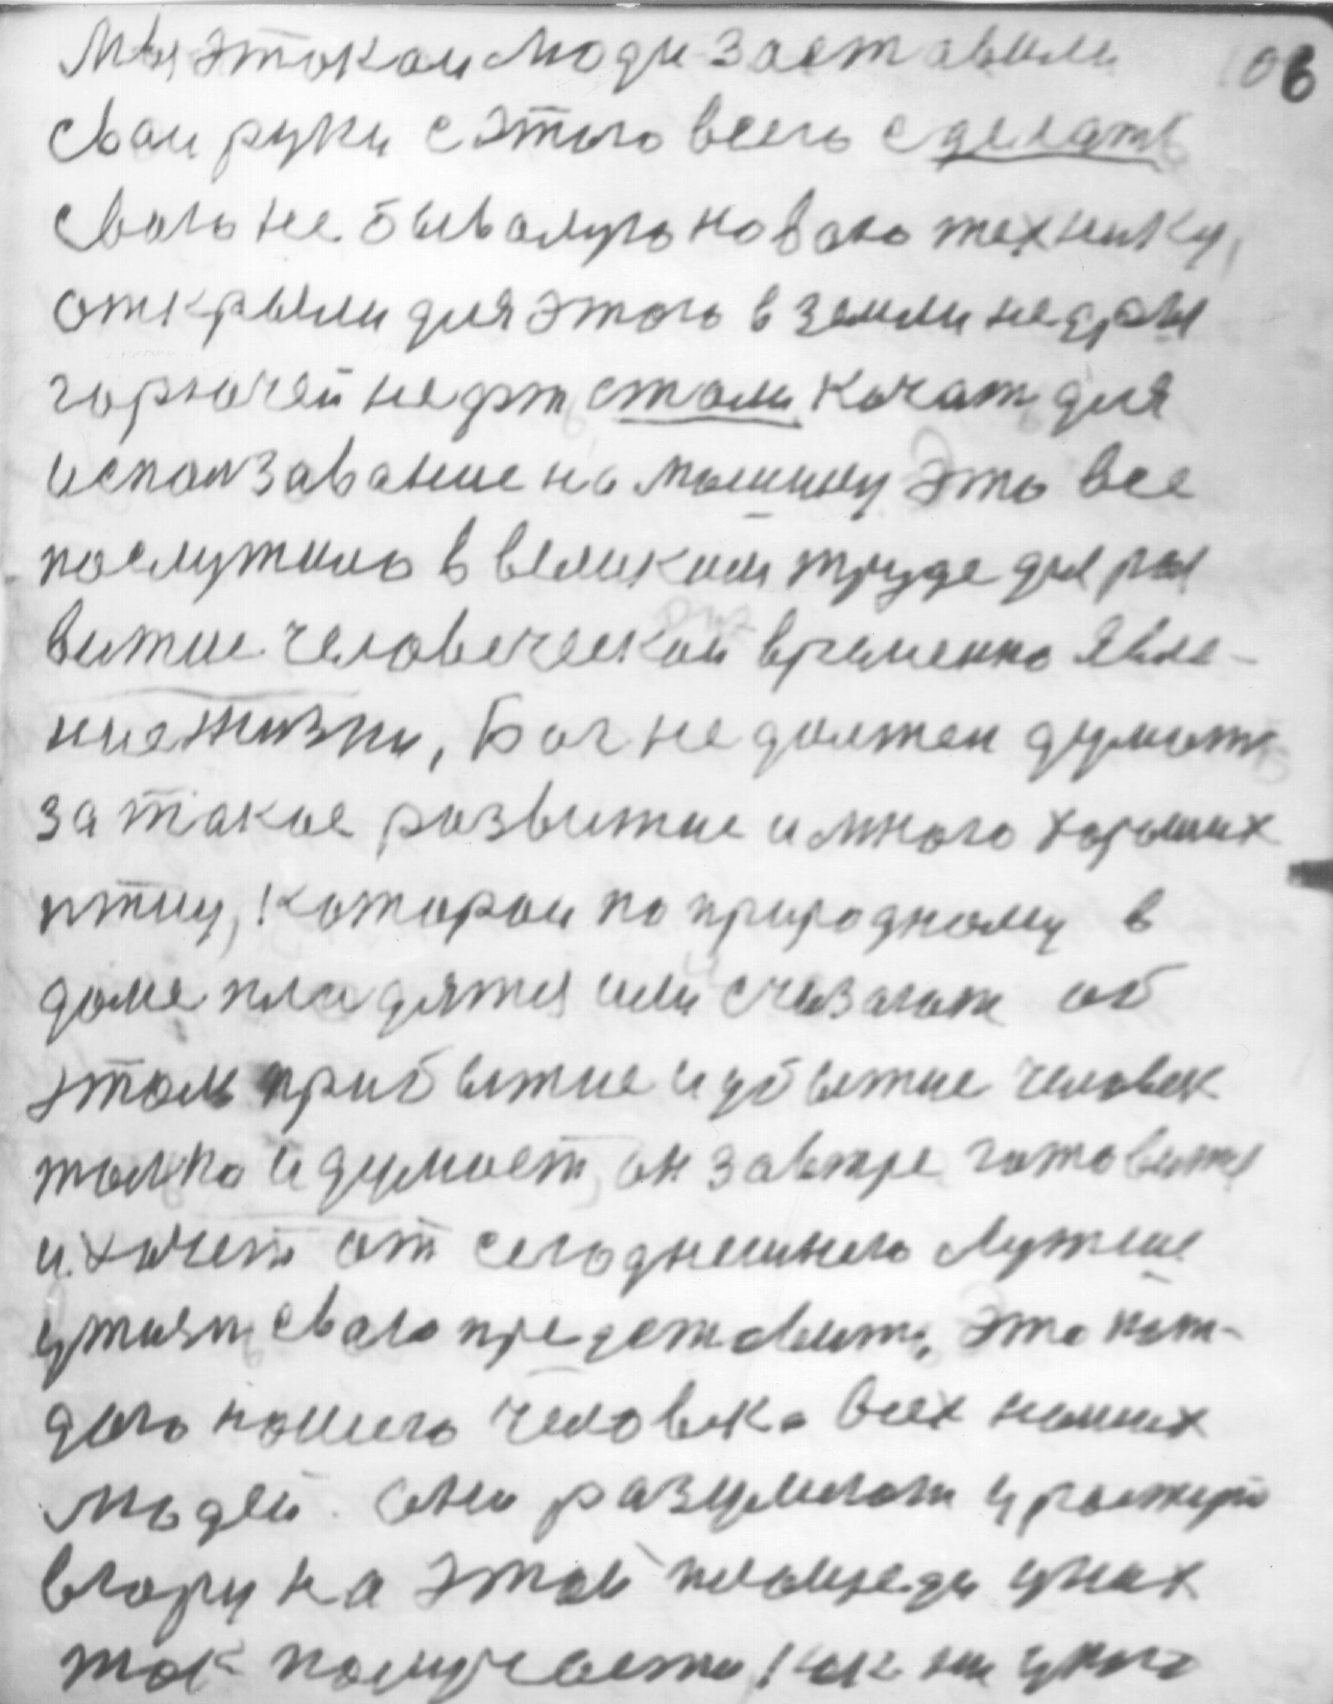 106
Мы этакаи люди заставили
сваи руки с этого всего сделать
сваю не бывалую новаю технику,
открыли для этого в земли недры
горючей нефти стали качать для
использавание на машину Это все
послужило в великом труде для раз
витие человеческой временно явле-
ние жизни, Бог не должен думать
за такое развитие и много хороших
птиц, каторои по природному в
доме плодятся или сказать об
этом прибытие и убытие человек
только и думает, он завтре готовится
и хочет от сегоднешнего лутшие
у жизни сваю представить, Это каж-
дого нашего человека всех наших
людей. они разумеют и растут
вгору на этой площади у них
так получается как ни у кого